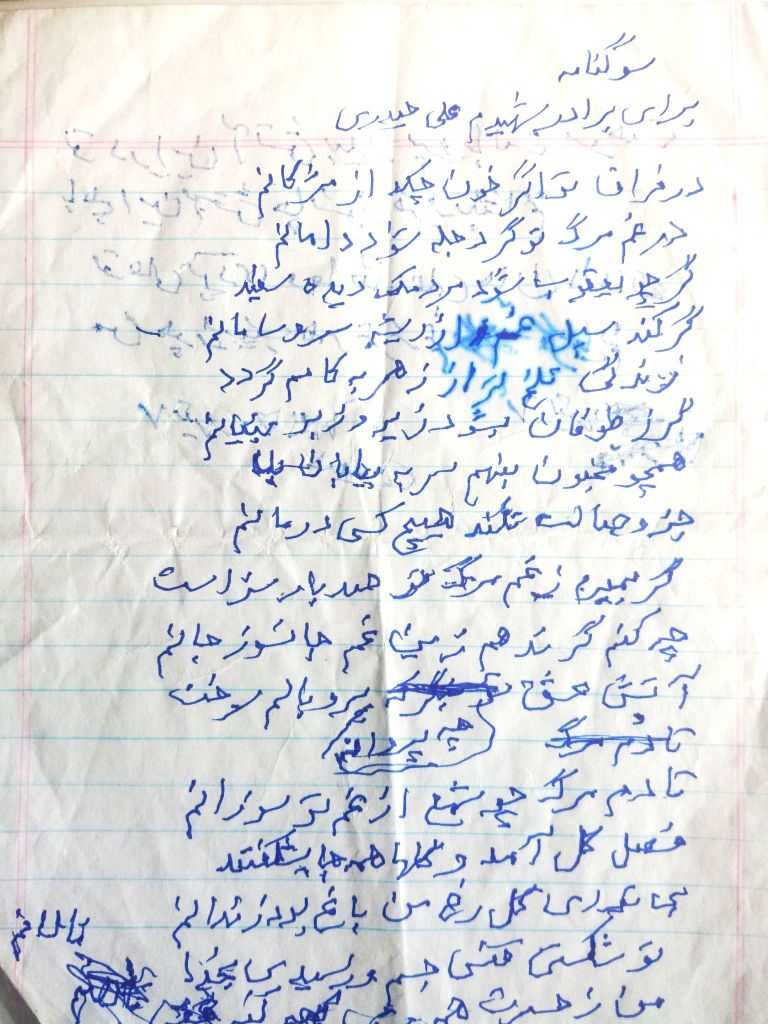 سوگنامه
برای برادر شهیدم علی حیدری
در فراق تو اگر خون چکد از مژگانم
در غم مرگ تو گر دجله شود دامانم
گر چو یعقوب شود مردمک دیده سفید
گر کند سیل غم از ریشه سر و سامانم
زندگی تلخ تر از زهر به کامم گردد
گر ز طوفان بشود زیر و زبر بنیانم
همچو مجنون بنهم سر به بیابان
جز وصالت نکند هیچ کسی درمانم
گر بمیرم ز غم مرگ تو صد بار سزاست
چه کنم گر ندهم زین غم جانسوز جانم
آتش عشق تو پر و بالم سوخت
چه پروانم
تا دم مرگ
تا دم مرگ چو شمع از غم تو سوزانم
فصل گل آمد و گلها همه جا بشکفتند
بی تو ای گل رخ من باغ بود زندانم
تو شکستی قفس جسم و رسیدی بخدا
من ز حسرت